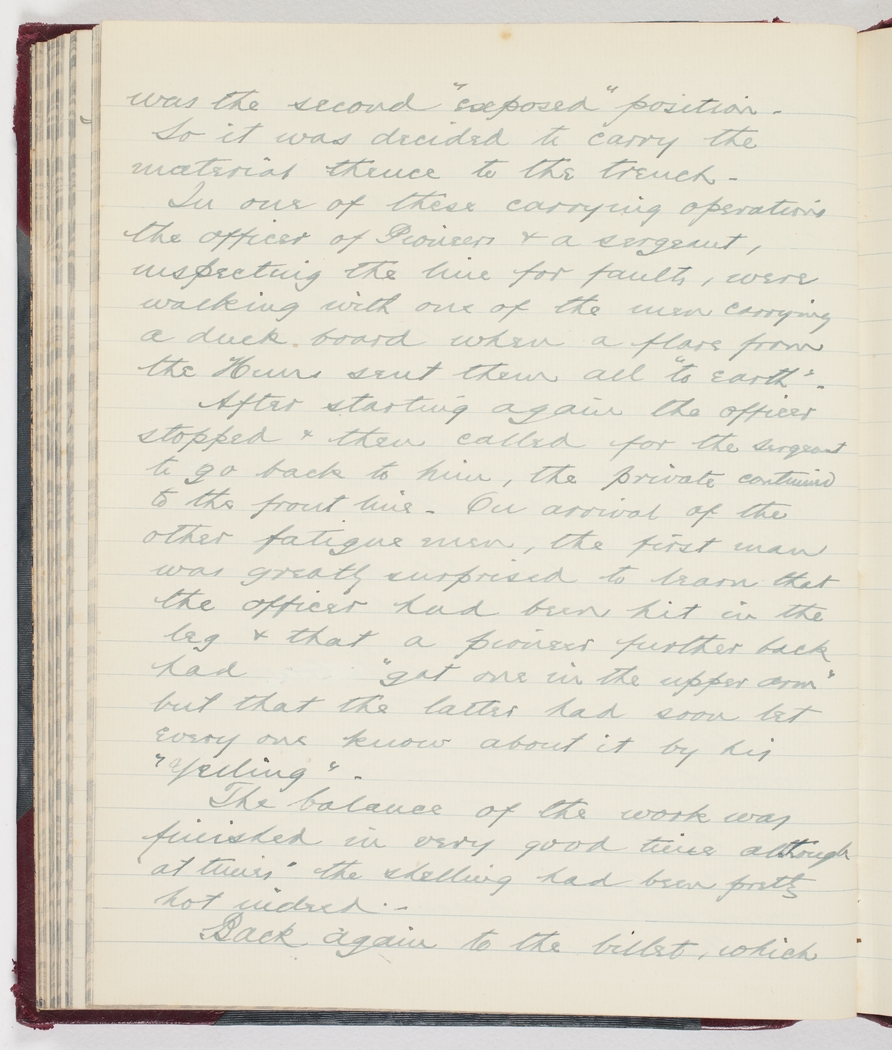 was the second "exposed" position.
So it was decided to carry the
material thence to the trench -
In one of these carrying operations
the officer of Pioneers & a sergeant,
inspecting the line for faults, were
walking with one of the men carrying
a duck board when a flare from
the Huns sent them all "to earth".
After starting again the officer
stopped & then called for the sergeant
to go back to him, the private continued
to the front line - On arrival of the
other fatigue men, the first man
was greatly surprised to learn that
the officer had been hit in the
leg & that a pioneer further back
had "got one in the upper arm"
but that the latter had soon let
every one know about it by his
"yelling".
The balance of the work was
finished in very good time although
at times the shelling had been pretty
hot indeed -
Back again to the billet, which